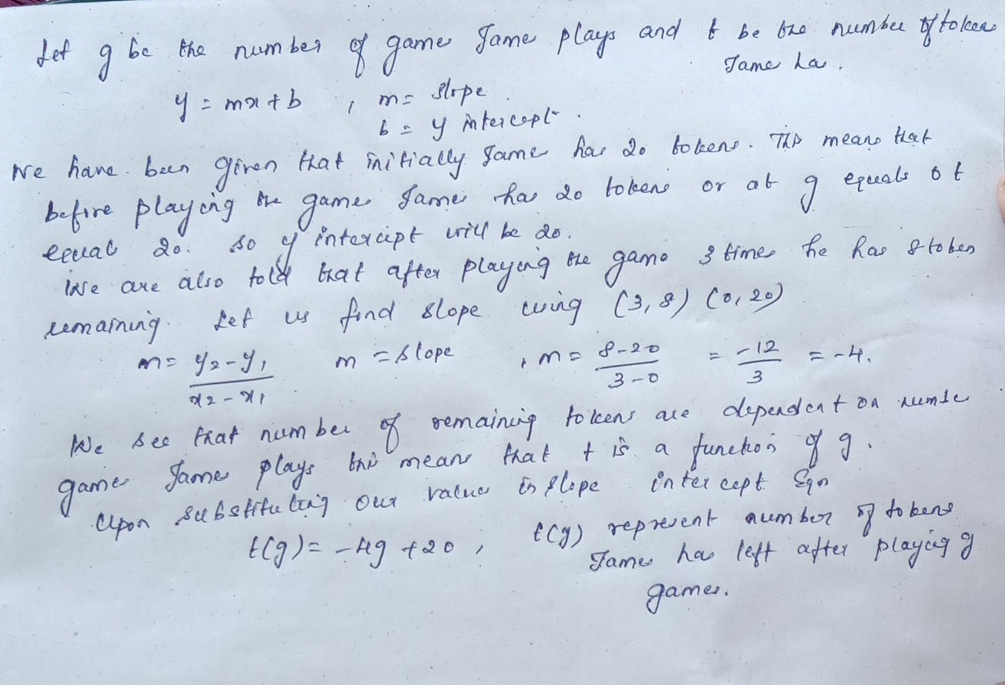 Let g be the number of game Jame plays and t be the number of token
Jame ha.
y = mx + b , m = slope.
b = y intercept.
We have been given that initially Jame has 20 tokens. This means that
before playing the game Jame has 20 tokens or at g equals 0 t
equal 20. So y intercept will be 20.
We are also told that after playing the game 3 times he has 8 token
remaining. Let us find slope using (3, 8) (0, 20)
m = y2 - y1 / x2 - x1 m = slope , m = 8-20 / 3-0 = -12 / 3 = -4.
We see that number of remaining tokens are dependent on numbe
game Jame plays this means that t is a function of g.
Upon substituting our value in slope intercept Eqn
t(g) = -4g + 20 , t(g) represent number of tokens
Jame has left after playing g
games.